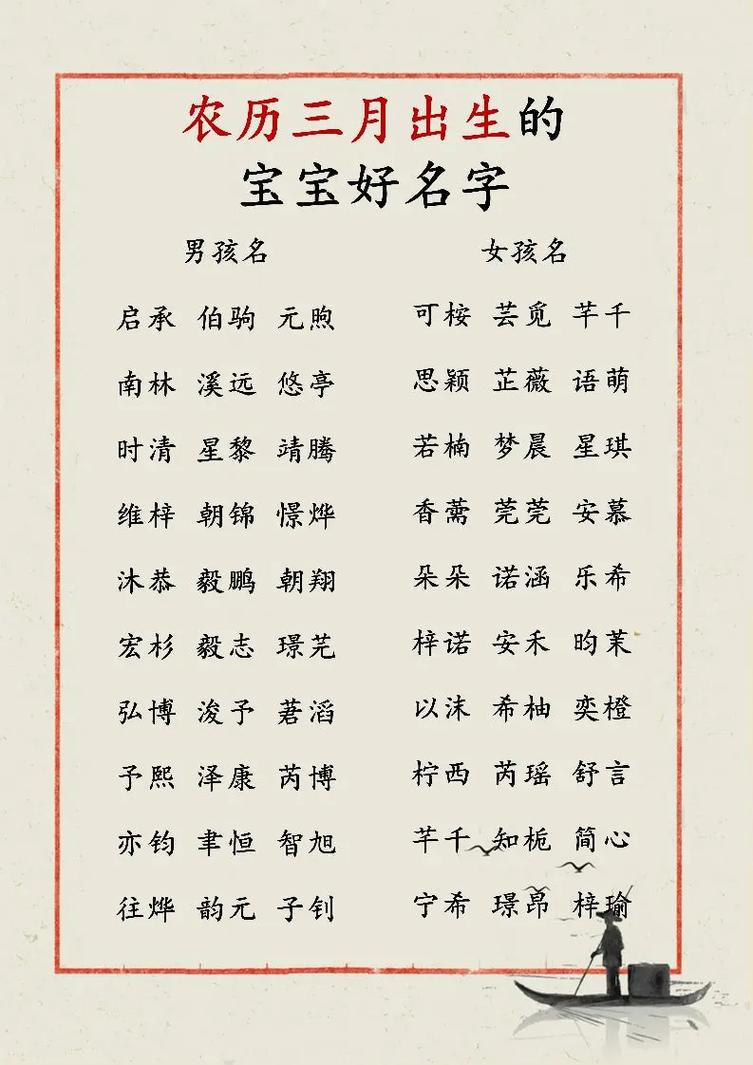 农历三月出生的
宝宝好名字
男孩名 女孩名
启承 伯驹 元煦 可桉 芸觅 芊千
南林 溪远 悠亭 思颖 芷薇 语萌
时清 星黎 靖腾 若楠 梦晨 星琪
维梓 朝锦 憬烨 香薷 莞莞 安慕
沐恭 毅鹏 朝翔 朵朵 诺涵 乐希
宏杉 毅志 璟芫 梓诺 安禾 昀茉
弘博 浚予 莙滔 以沫 希柚 奕橙
予熙 泽康 芮博 柠西 芮瑶 舒言
亦钧 聿恒 智旭 芊千 知栀 简心
往烨 韵元 子钊 宁希 璟昂 梓瑜